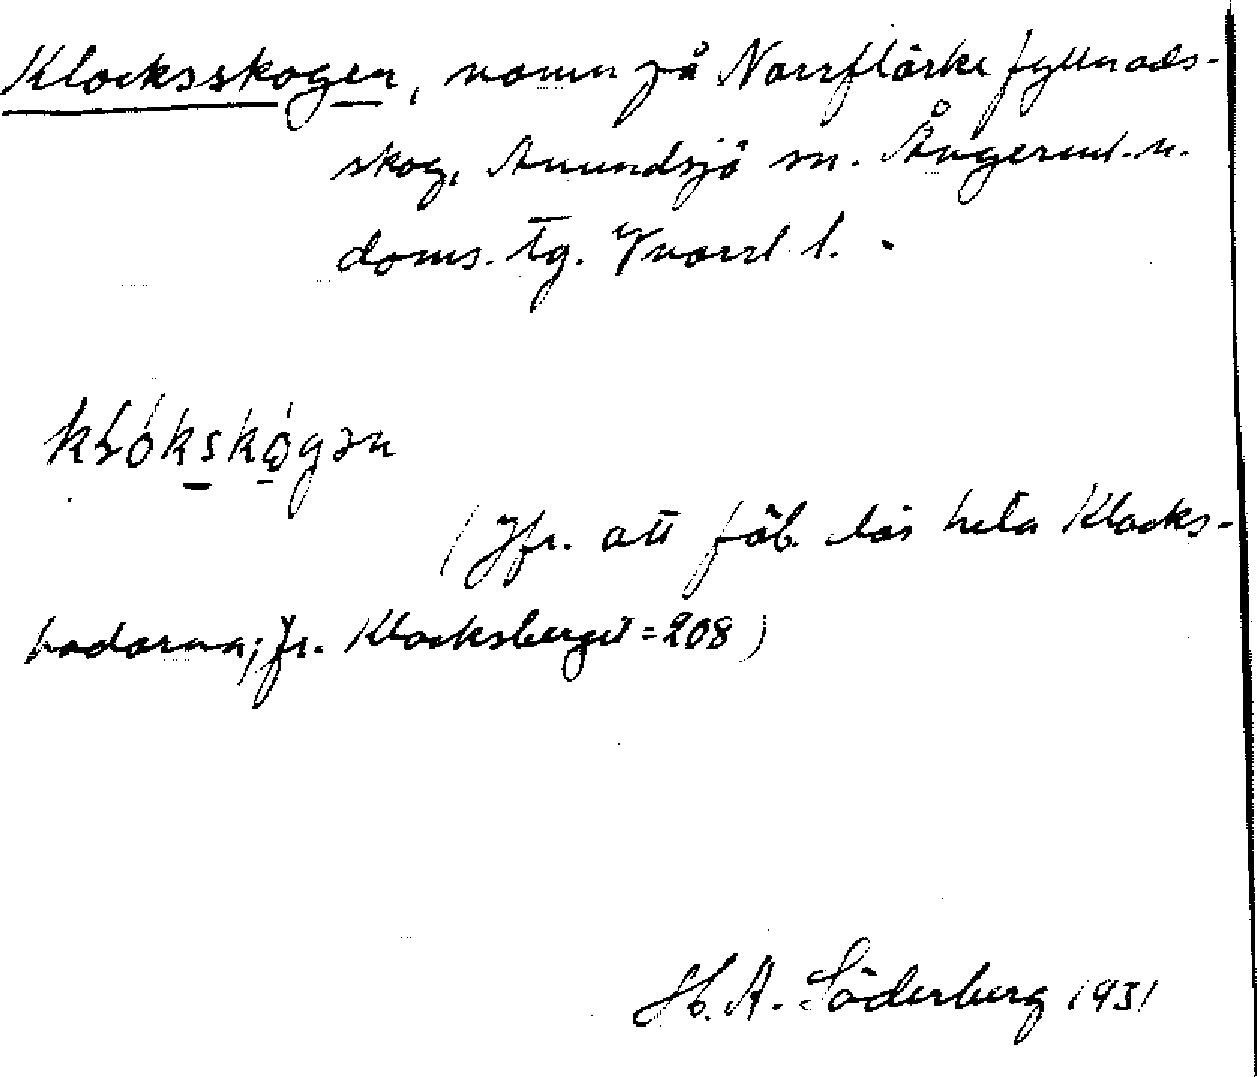 Klocksskogen, namn på Norrflärke fyllnads-
skog, Anundsjö sn. Ångerml. n.
doms. tg. Y norrl l.
kɬókskógən
(Jfr. att fäb. där heta Klocks-
bodarna; jfr. Klocksberget = 208)
H. A. Söderberg 1931